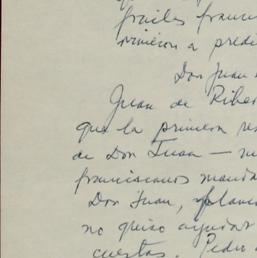 frailes francis
vinieron a predi
Don Juan
Juan de Ribe
que la primera res
de Don Juan — ne
franciscanos manda
Don Juan,
no quiso ayudar
cuestas. Pedro